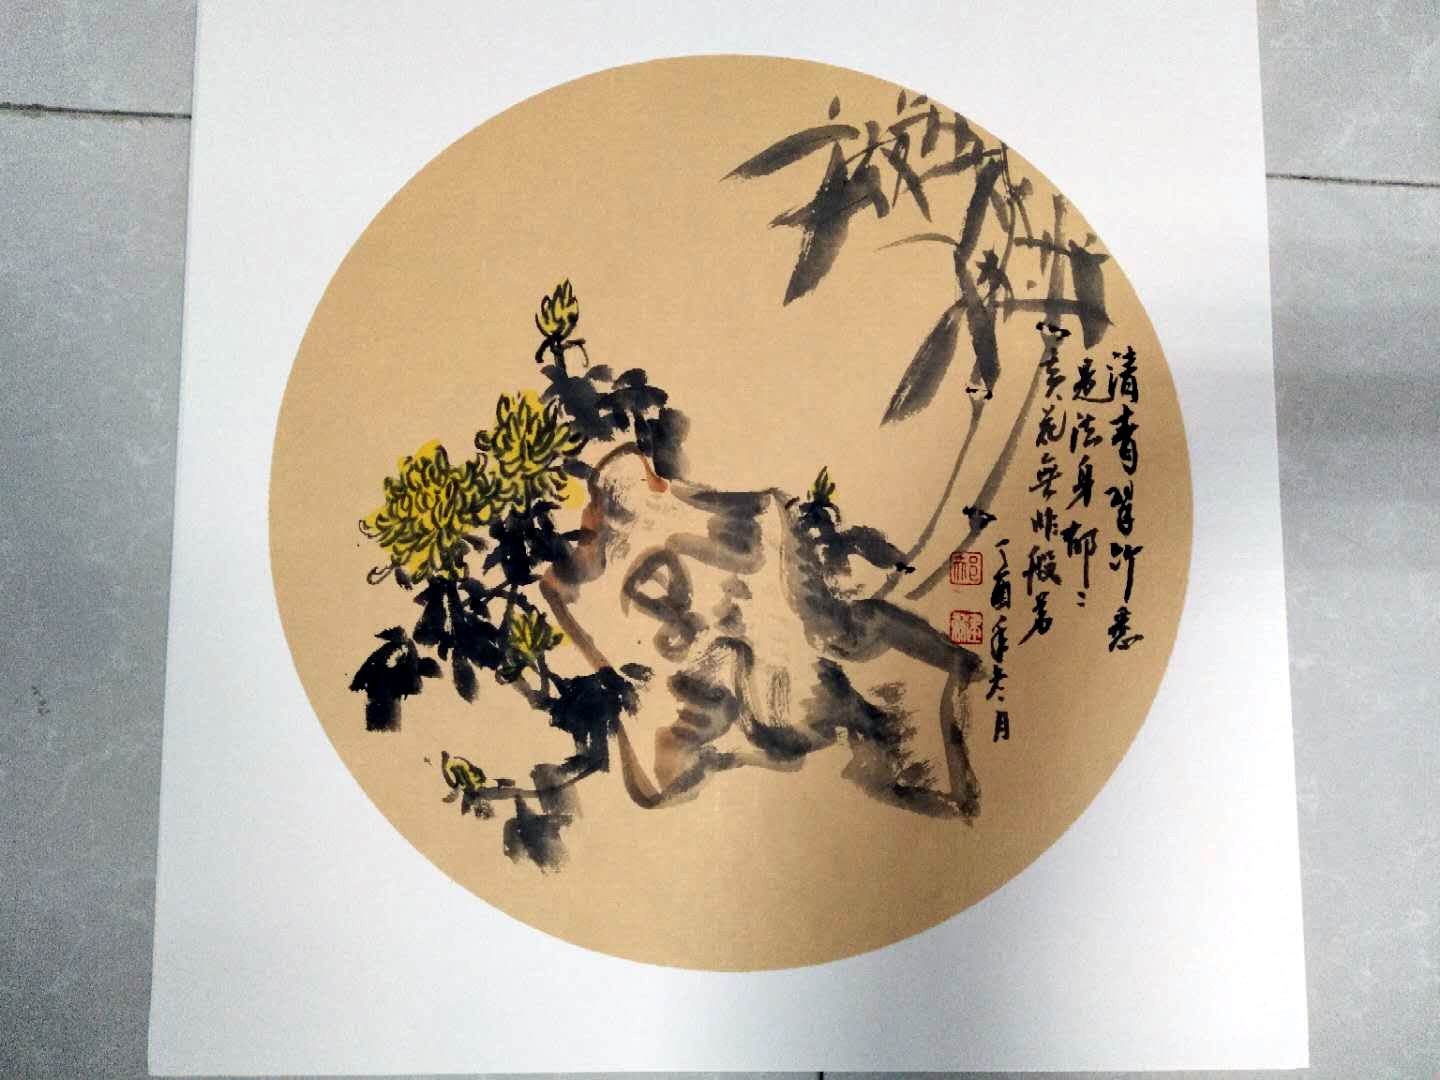 清青翠竹悉
是法身郁〻
黄花無非般若
丁酉年冬月